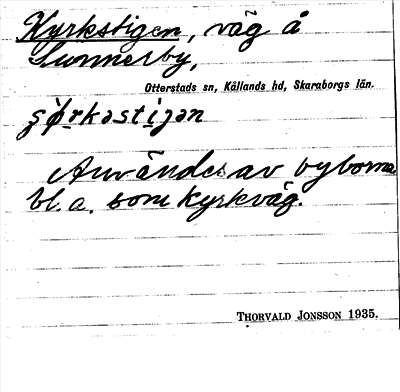 Kyrkstigen, väg å
Sunnerby,
Otterstads sn, Kållands hd, Skaraborgs län.
ʂørkəstijən
Användes av byborna
bl. a. som kyrkväg.
THORVALD JONSSON 1935.